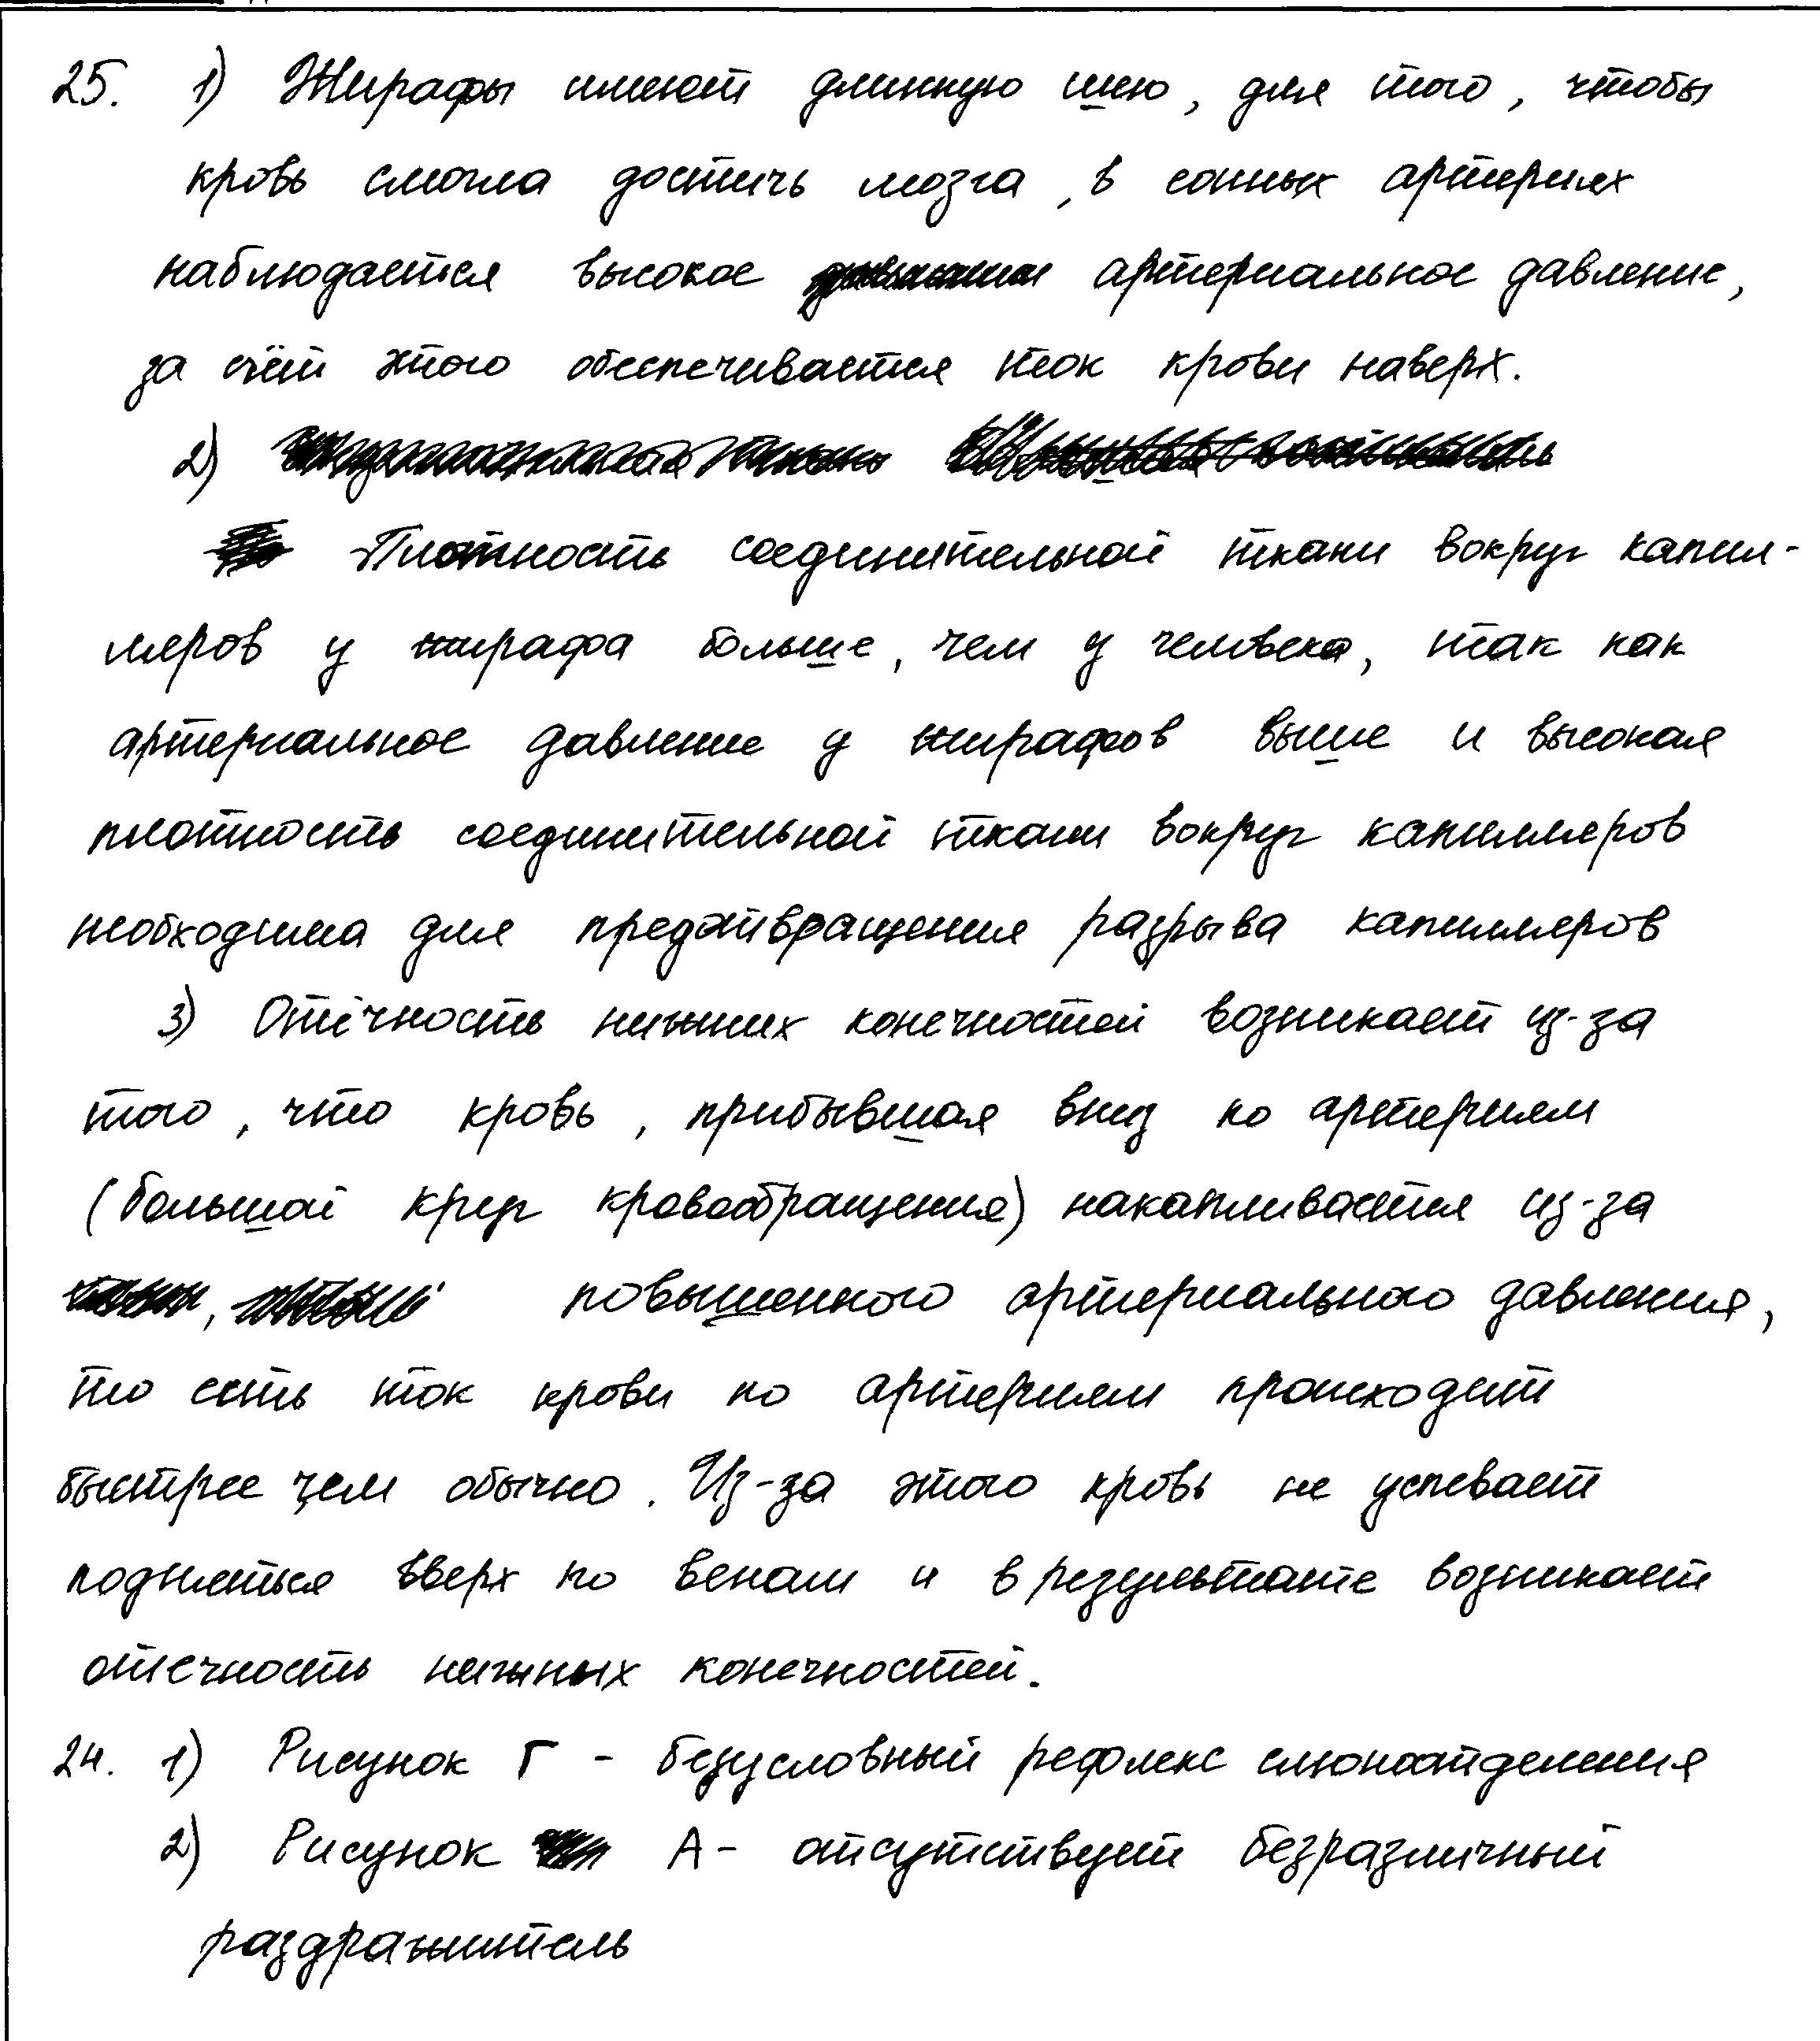 25. 1) Жирафы имеют длинную шею, для того, чтобы
кровь смогла достичь мозга, в сонных артериях
наблюдается высокое артериальное давление,
за счёт этого обеспечивается ток крови наверх.
2)
Плотность соединительной ткани вокруг капил-
ляров у жирафа больше, чем у человека, так как
артериальное давление у жирафов выше и высокая
плотность соединительной ткани вокруг капилляров
необходима для предотвращения разрыва капилляров
3) Отёчность нижних конечностей возникает из-за
того, что кровь, прибывшая вниз по артериям
(большой круг кровообращения) накапливается из-за
повышенного артериального давления,
то есть ток крови по артериям происходит
быстрее чем обычно. Из-за этого кровь не успевает
подняться вверх по венам и в результате возникает
отечность нижних конечностей.
24. 1) Рисунок Г - безусловный рефлекс слюноотделения
2) Рисунок А - отсутствует безразличный
раздражитель